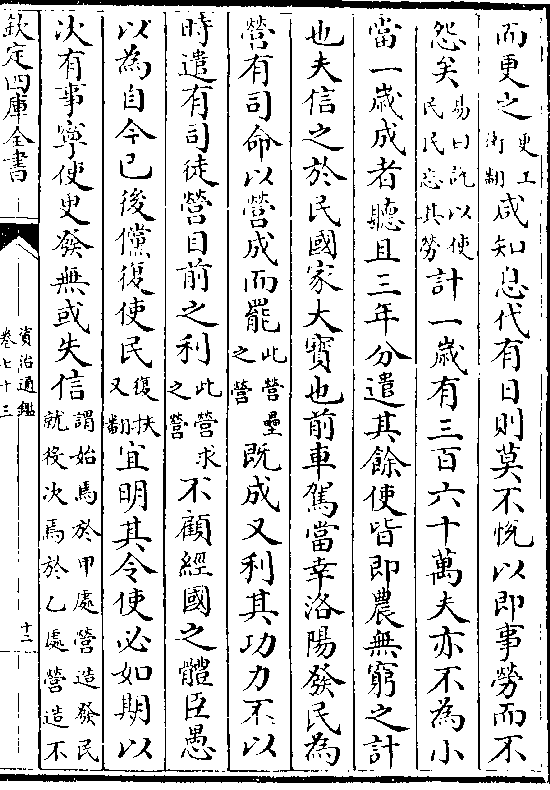 而更之更工衡翻咸知息代有日則莫不悦以即事勞而不
怨矣易曰説以使民民忘其勞計一歲有三百六十萬夫亦不為小
當一歲成者聽且三年分遣其餘使皆即農無窮之計
也夫信之於民國家大寶也前車駕當幸洛陽發民為
營有司命以營成而罷此營壘之營既成又利其功力不以
時遣有司徒營目前之利此營求之營不顧經國之體臣愚
以為自今已後儻復使民復扶又翻宜明其令使必如期以
次有事寧使更發無或失信謂始焉於甲處營造發民就役次焉於乙處營造不
欽定四庫全書
資治通鑑
卷七十三
十二